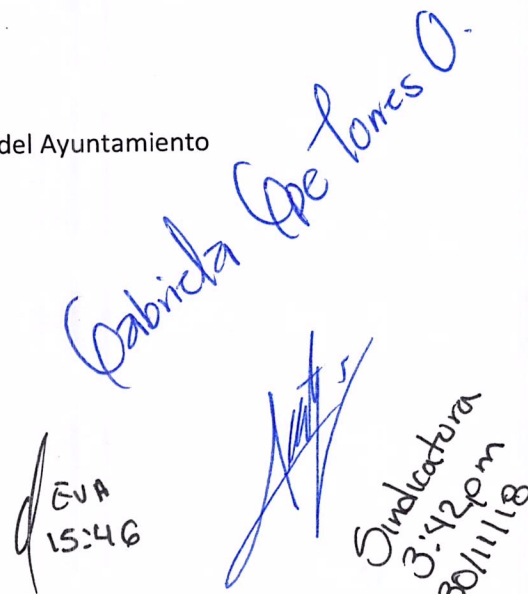 del Ayuntamiento
Gabriela Gpe Torres O.
EVA
15:46
Sindicatura
3:42pm
30/11/18